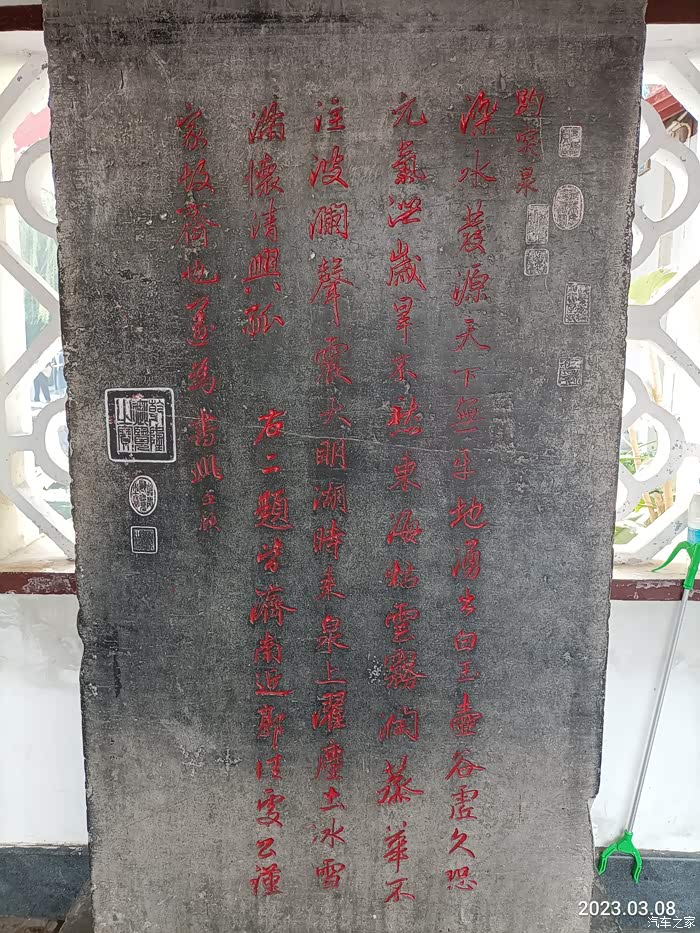 趵突泉
濼水發源天下無平地涌出白玉壺谷虛久恐
元氣洩歲旱不愁東海枯雲霧潤蒸華不
注波瀾聲震大明湖時來泉上濯塵土冰雪
滿懷清興孤 右二題皆濟南近郭佳處公謹
家故齊也遂為書此孟頫
乾隆御覽之寶
2023.03.08
汽车之家